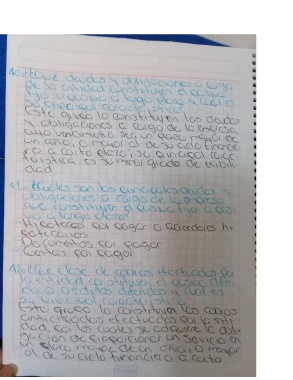 40. ¿Qué deudas y obligaciones a cargo
de la entidad constituyen el pasivo
fijo o pasivo a largo plazo y cuál
su principal característica?
Este grupo lo constituyen las deudas
y obligaciones a cargo de la empresa,
cuyo vencimiento sea un plazo mayor de
un año, o mayor al de su ciclo financie
ro a corto plazo, su principal carac
terística es su menor grado de exibili
dad
41. ¿Cuáles son las principales deudas y
obligaciones a cargo de la empresa
que constituyen el pasivo fijo o pasi
vo a largo plazo?
Hipotecas por pagar o acreedores hi
potecarios
Documentos por pagar
Cuentas por pagar
42. ¿Qué clase de cobros efectuados por
la entidad constituyen el pasivo diferi
do o créditos diferidos y cuál es
su principal característica?
Este grupo lo constituyen los cobros
anticipados efectuados por la enti
dad, por los cuales se adquiere la obli
gación de proporcionar un servicio en
un plazo mayor de un año, o mayor
al de su ciclo financiero a corto